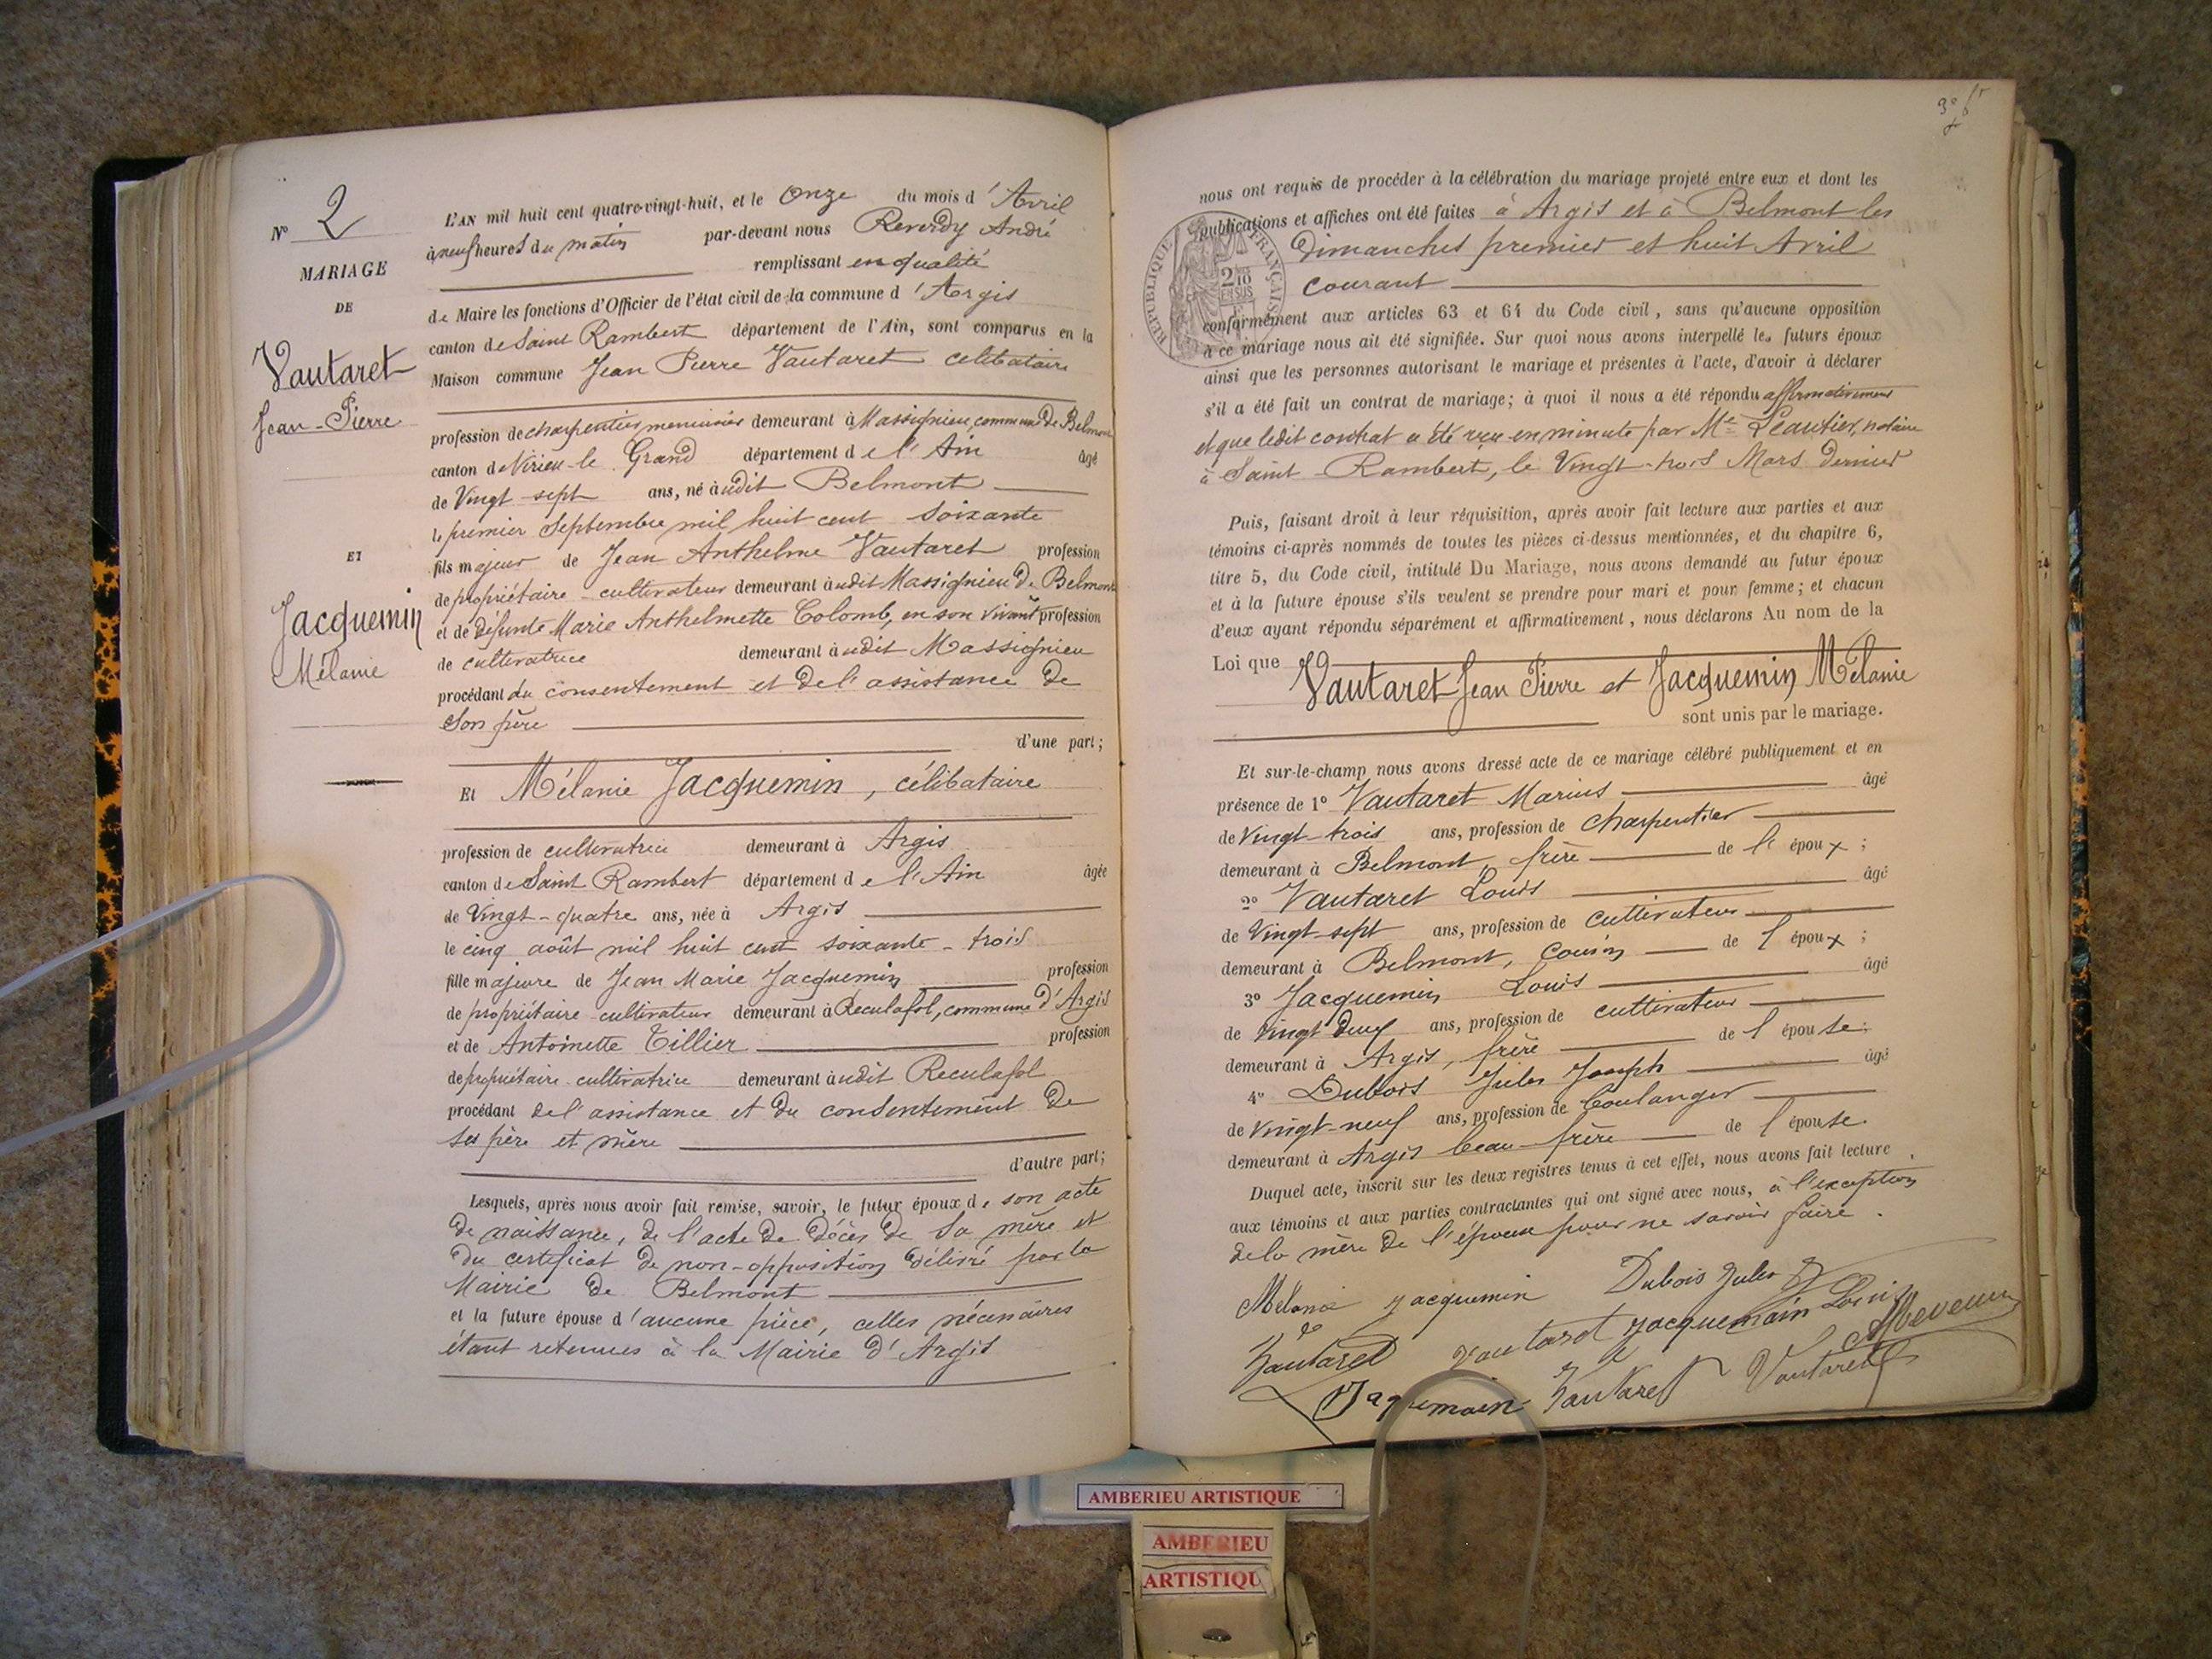 N° 2
MARIAGE
DE
Vautaret
Jean-Pierre
ET
Jacquemin
Mélanie
L'AN mil huit cent quatre-vingt-huit, et le Onze du mois d'Avril
à neuf heures du matin par-devant nous Reverdy André
remplissant en qualité
de Maire les fonctions d'Officier de l'état civil de la commune d'Argis
canton de Saint Rambert département de l'Ain, sont comparus en la
Maison commune Jean Pierre Vautaret célibataire
profession de charpentier menuisier demeurant à Massignieu, commune de Belmont
canton de Virieu-le-Grand département de l'Ain âgé
de Vingt-sept ans, né audit Belmont
le premier Septembre mil huit cent soixante
fils majeur de Jean Anthelme Vautaret profession
de propriétaire-cultivateur demeurant audit Massignieu de Belmont
et de défunte Marie Anthelmette Colomb, en son vivant profession
de cultivatrice demeurant audit Massignieu
procédant du consentement et de l'assistance de
son père
d'une part;
Et Mélanie Jacquemin, célibataire
profession de cultivatrice demeurant à Argis
canton de Saint Rambert département de l'Ain âgée
de Vingt-quatre ans, née à Argis
le cinq août mil huit cent soixante-trois
fille majeure de Jean Marie Jacquemin profession
de propriétaire-cultivateur demeurant à Reculafol, commune d'Argis
et de Antoinette Tillier profession
de propriétaire-cultivatrice demeurant audit Reculafol
procédant de l'assistance et du consentement de
ses père et mère
d'autre part;
Lesquels, après nous avoir fait remise, savoir, le futur époux de son acte
de naissance, de l'acte de décès de sa mère et
du certificat de non-opposition délivré par la
Mairie de Belmont
et la future épouse d'aucune pièce, celles nécessaires
étant retenues à la Mairie d'Argis
nous ont requis de procéder à la célébration du mariage projeté entre eux et dont les
publications et affiches ont été faites à Argis et à Belmont les
Dimanches premier et huit Avril
courant
RÉPUBLIQUE FRANÇAISE
conformément aux articles 63 et 64 du Code civil, sans qu'aucune opposition
à ce mariage nous ait été signifiée. Sur quoi nous avons interpellé les futurs époux
ainsi que les personnes autorisant le mariage et présentes à l'acte, d'avoir à déclarer
s'il a été fait un contrat de mariage; à quoi il nous a été répondu affirmativement
et que ledit contrat a été reçu en minute par Me Leautier, notaire
à Saint-Rambert, le Vingt-trois Mars dernier
Puis, faisant droit à leur réquisition, après avoir fait lecture aux parties et aux
témoins ci-après nommés de toutes les pièces ci-dessus mentionnées, et du chapitre 6,
titre 5, du Code civil, intitulé Du Mariage, nous avons demandé au futur époux
et à la future épouse s'ils veulent se prendre pour mari et pour femme; et chacun
d'eux ayant répondu séparément et affirmativement, nous déclarons Au nom de la
Loi que Vautaret Jean Pierre et Jacquemin Mélanie
sont unis par le mariage.
Et sur-le-champ nous avons dressé acte de ce mariage célébré publiquement et en
présence de 1° Vautaret Marius âgé
de Vingt-trois ans, profession de charpentier
demeurant à Belmont, frère de l'époux;
2° Vautaret Louis âgé
de Vingt-sept ans, profession de cultivateur
demeurant à Belmont, cousin de l'époux;
3° Jacquemin Louis âgé
de Vingt deux ans, profession de cultivateur
demeurant à Argis, frère de l'épouse;
4° Dubois Jules Joseph âgé
de Vingt-neuf ans, profession de boulanger
demeurant à Argis beau-frère de l'épouse.
Duquel acte, inscrit sur les deux registres tenus à cet effet, nous avons fait lecture
aux témoins et aux parties contractantes qui ont signé avec nous, à l'exception
de la mère de l'épouse pour ne savoir faire.
Mélanie Jacquemin Dubois Jules
Vautaret Vautaret Jacquemain Louis
Jaquemain Vautaret Vautaret
AMBERIEU ARTISTIQUE
AMBERIEU
ARTISTIQU